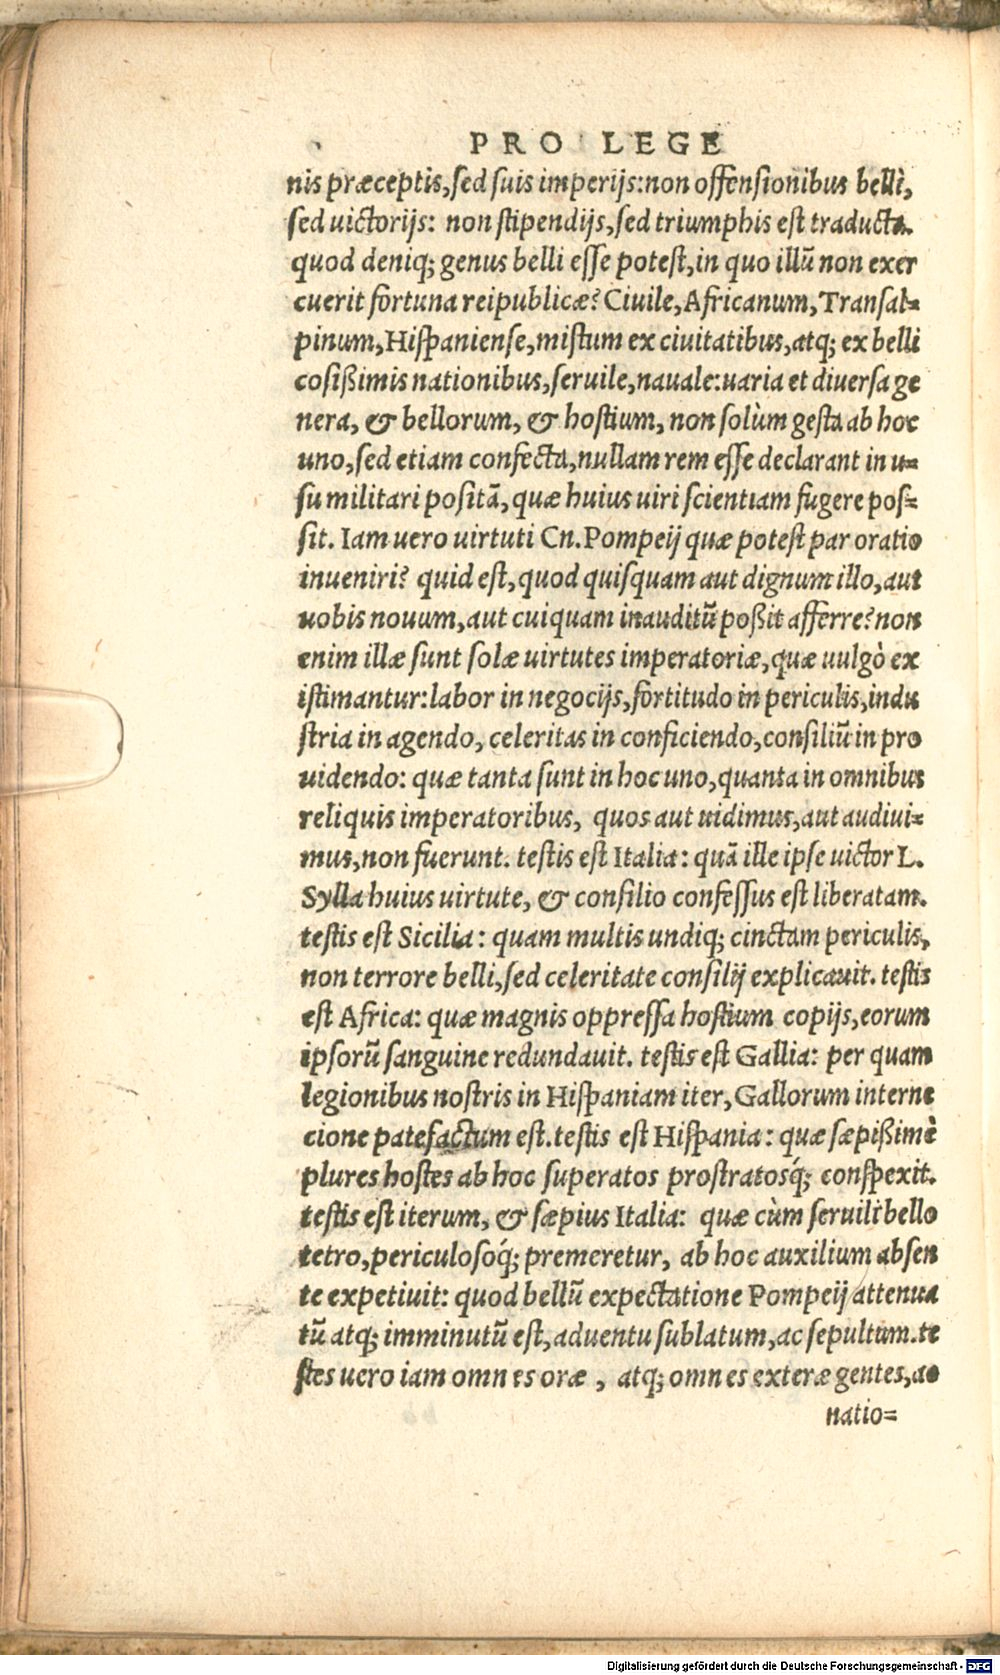 PRO LEGE
nis præceptis, sed suis imperijs: non offensionibus belli,
sed victorijs: non stipendijs, sed triumphis est traducta.
quod deniq; genus belli esse potest, in quo illũ non exer
cuerit fortuna reipublicæ? Ciuile, Africanum, Transal=
pinum, Hispaniense, mistum ex ciuitatibus, atq; ex belli
cosißimis nationibus, seruile, nauale: uaria et diuersa ge
nera, & bellorum, & hostium, non solùm gesta ab hoc
uno, sed etiam confecta, nullam rem esse declarant in u=
su militari positã, quæ huius uiri scientiam fugere pos=
sit. Iam uero uirtuti Cn. Pompeij quæ potest par oratio
inueniri? quid est, quod quisquam aut dignum illo, aut
uobis nouum, aut cuiquam inauditũ poßit afferre? non
enim illæ sunt solæ uirtutes imperatoriæ, quæ uulgò ex
istimantur: labor in negocijs, fortitudo in periculis, indu
stria in agendo, celeritas in conficiendo, consiliũ in pro
uidendo: quæ tanta sunt in hoc uno, quanta in omnibus
reliquis imperatoribus, quos aut uidimus, aut audiui=
mus, non fuerunt. testis est Italia: quã ille ipse uictor L.
Sylla huius uirtute, & consilio confessus est liberatam.
testis est Sicilia: quam multis undiq; cinctam periculis,
non terrore belli, sed celeritate consilij explicauit. testis
est Africa: quæ magnis oppressa hostium copijs, eorum
ipsorũ sanguine redundauit. testis est Gallia: per quam
legionibus nostris in Hispaniam iter, Gallorum interne
cione patefactum est. testis est Hispania: quæ sæpißimè
plures hostes ab hoc superatos prostratosq́; conspexit.
testis est iterum, & sæpius Italia: quæ cùm seruili bello
tetro, periculosoq́; premeretur, ab hoc auxilium absen
te expetiuit: quod bellũ expectatione Pompeij attenua
tũ atq; imminutũ est, aduentu sublatum, ac sepultum. te
stes uero iam omnes oræ, atq; omnes exteræ gentes, ac
natio=
Digitalisierung gefördert durch die Deutsche Forschungsgemeinschaft - DFG